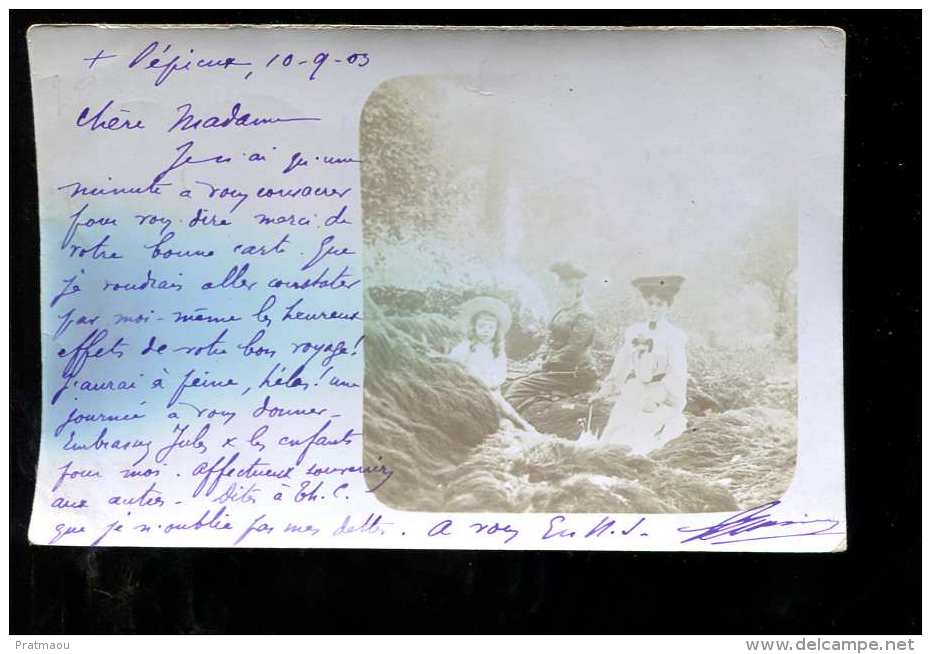 + Pépieux, 10-9-03
Chère Madame
Je n'ai qu'une
minute à vous consacrer
pour vous dire merci de
votre bonne carte. Que
je voudrais aller constater
par moi-même les heureux
effets de votre bon voyage!
J'aurai à peine, hélas! une
journée à vous donner -
Embrassez Jules & les enfants
pour moi. Affectueux souvenirs
aux autres - Dites à Th. C.
que je n'oublie pas mes dettes. A vous En N.S.
Pratmaou
http://www.delcampe.net